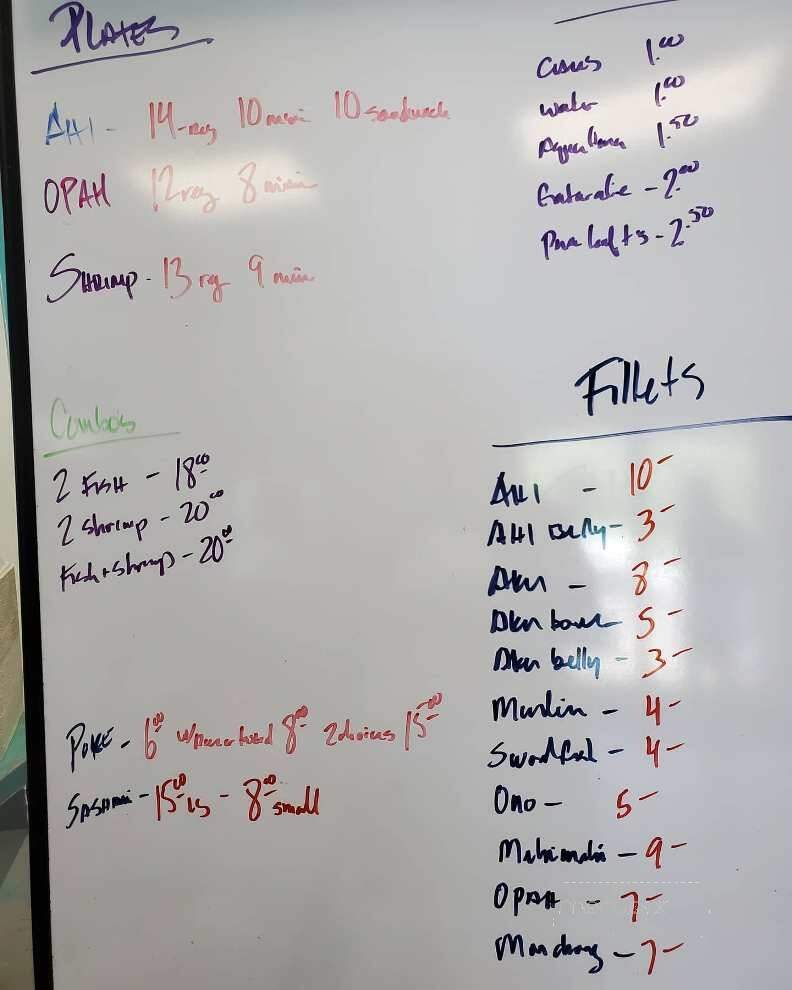 PLATES
AHI - 14-reg 10 mini 10 sandwich
OPAH 12 reg 8 mini
SHRIMP - 13 reg 9 mini
Combos
2 FISH - 18.00
2 shrimp - 20.00
Fish + shrimp - 20.00
POKE - 6.00 8.00 2 choices 15.00
SASHIMI - 15.00 LG - 8.00 small
CANS 1.00
water 1.00
Aquafina 1.50
Gatorade - 2.00
Pure leaf t's - 2.50
Fillets
AHI - 10-
AHI Belly - 3-
Aku - 8-
Aku bones - 5-
Aku belly - 3-
Marlin - 4-
Swordfish - 4-
Ono - 5-
Mahimahi - 9-
OPAH - 7-
Monchong - 7-